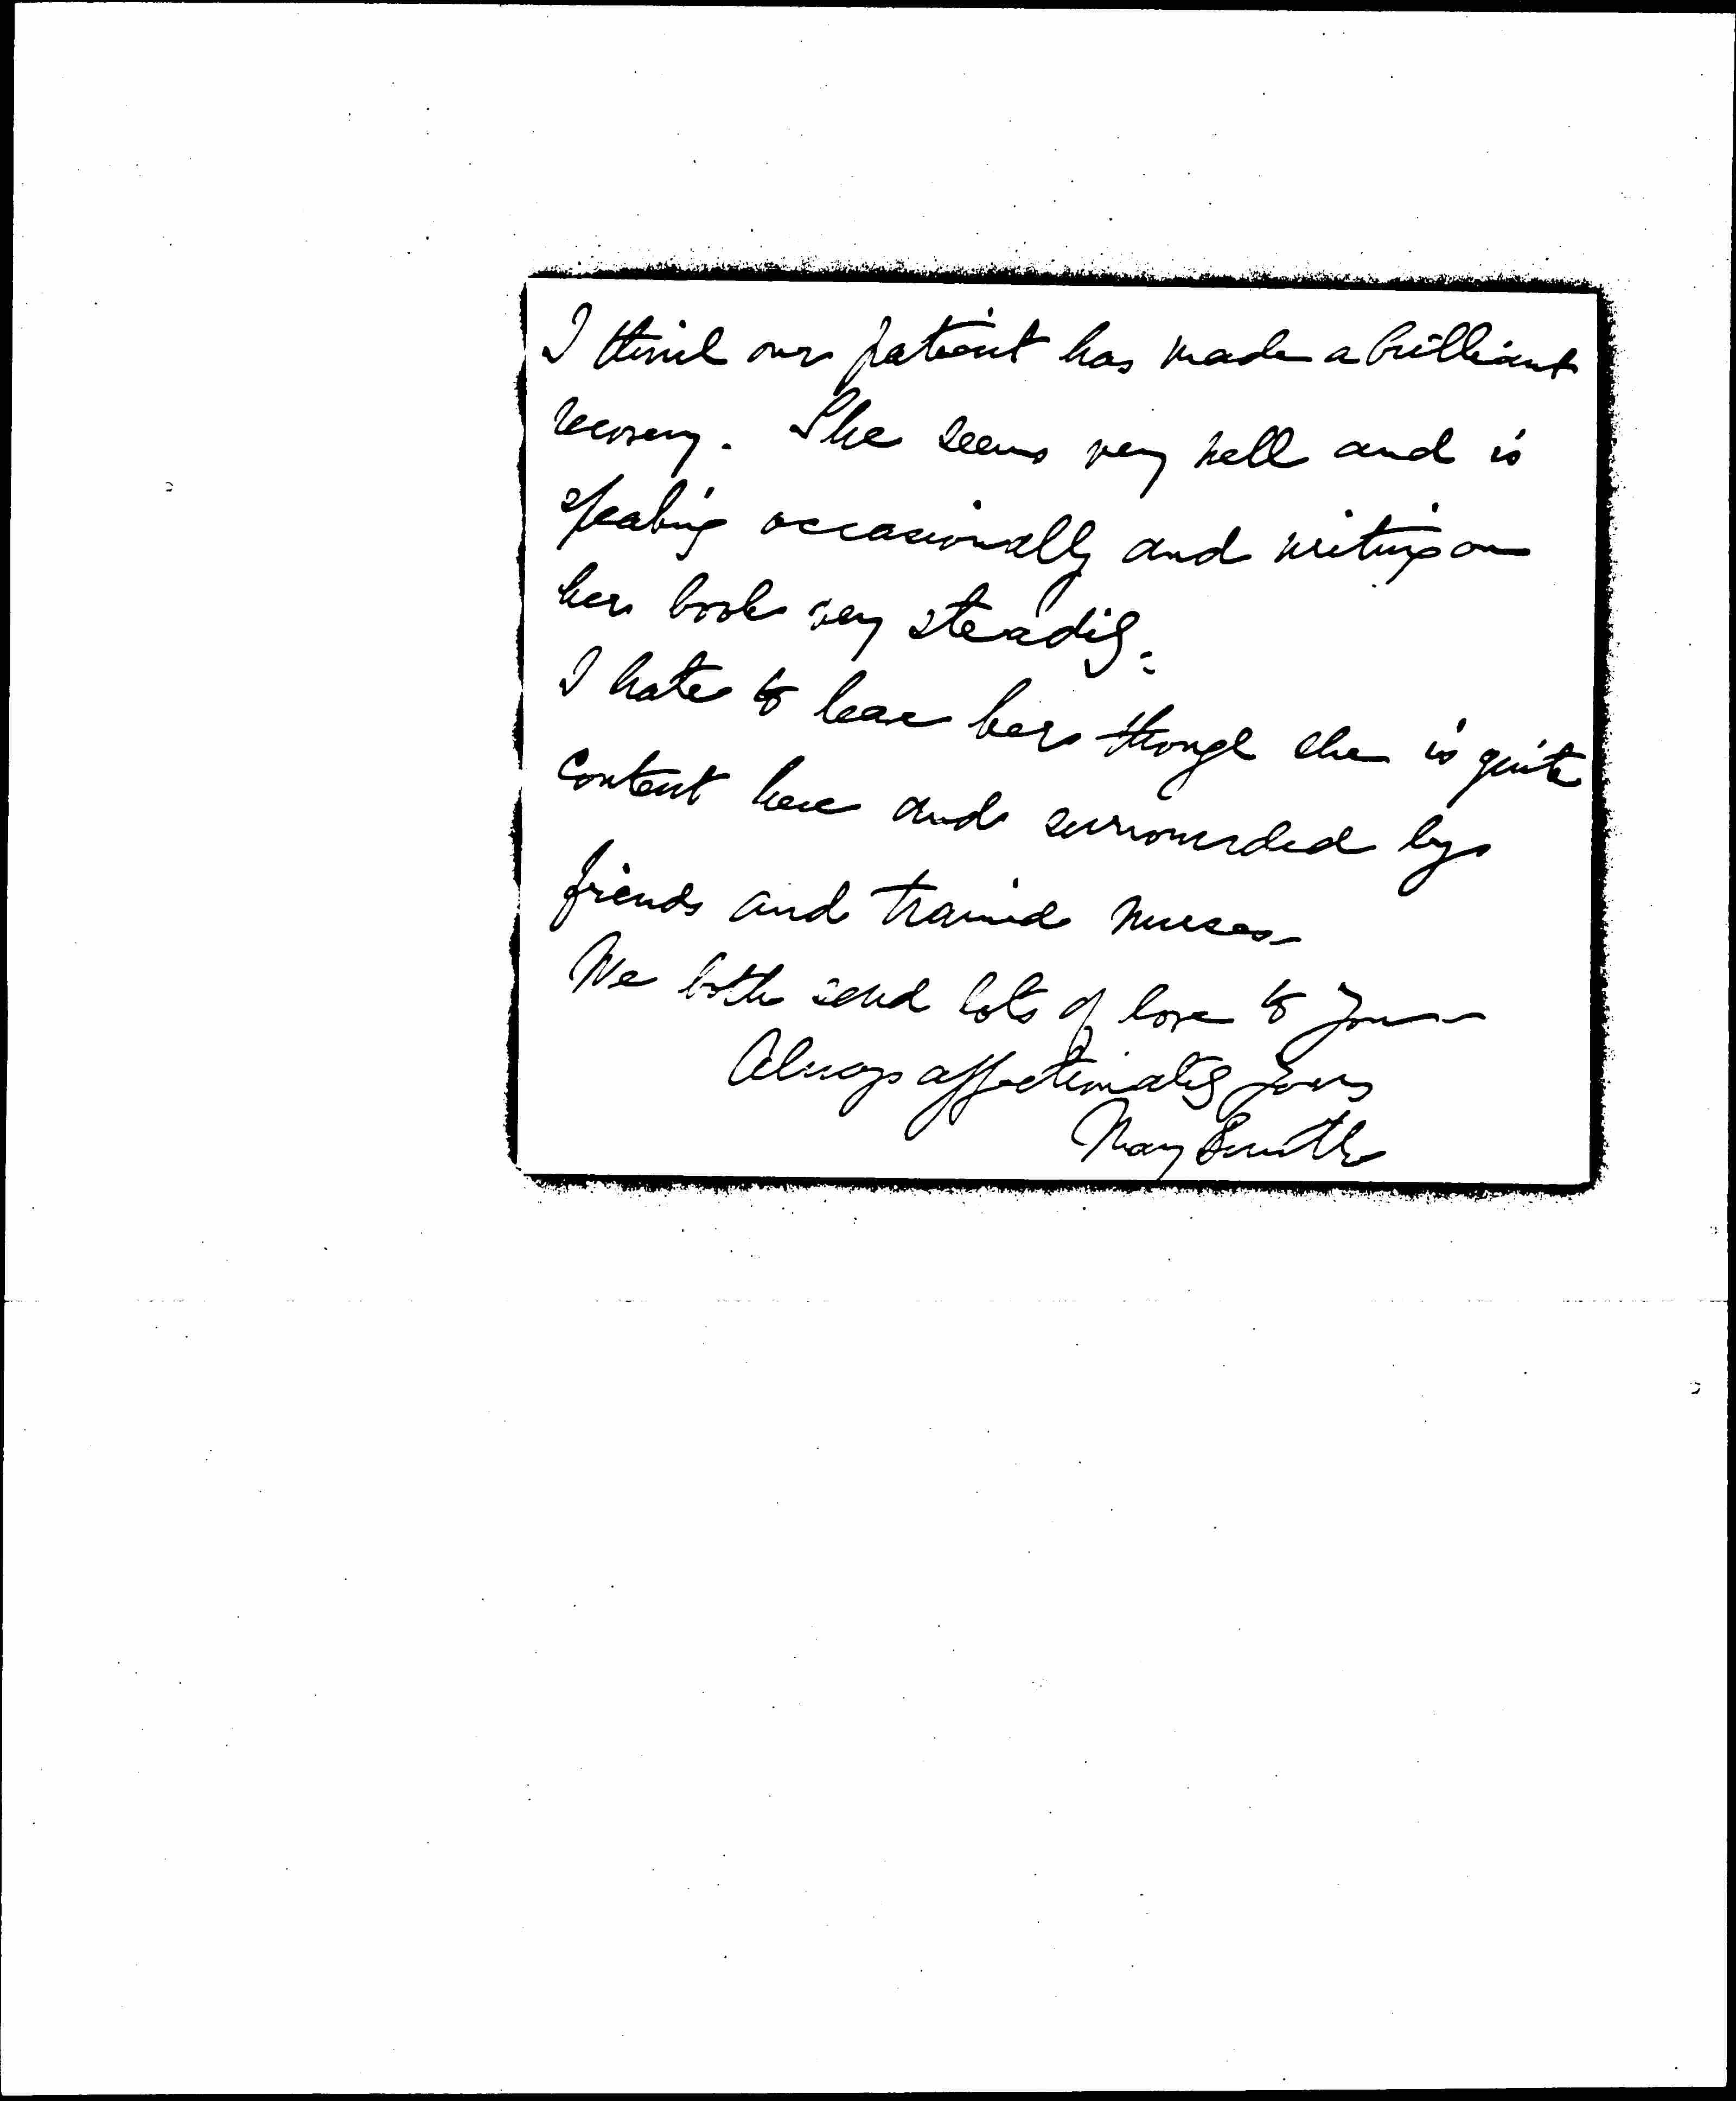 I think our patient has made a brilliant
recovery. She seems very well and is
speaking occasionally and writing on
her book very steadily.
I hate to leave her though she is quite
content here and surrounded by
friends and trained nurses—
We both send lots of love to you—
Always affectionately yours
Mary Smith